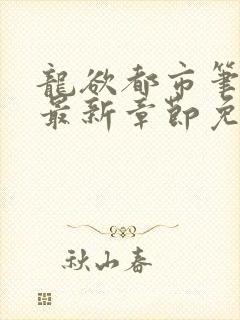 龍欲都市筆
最新章節免
秋山春